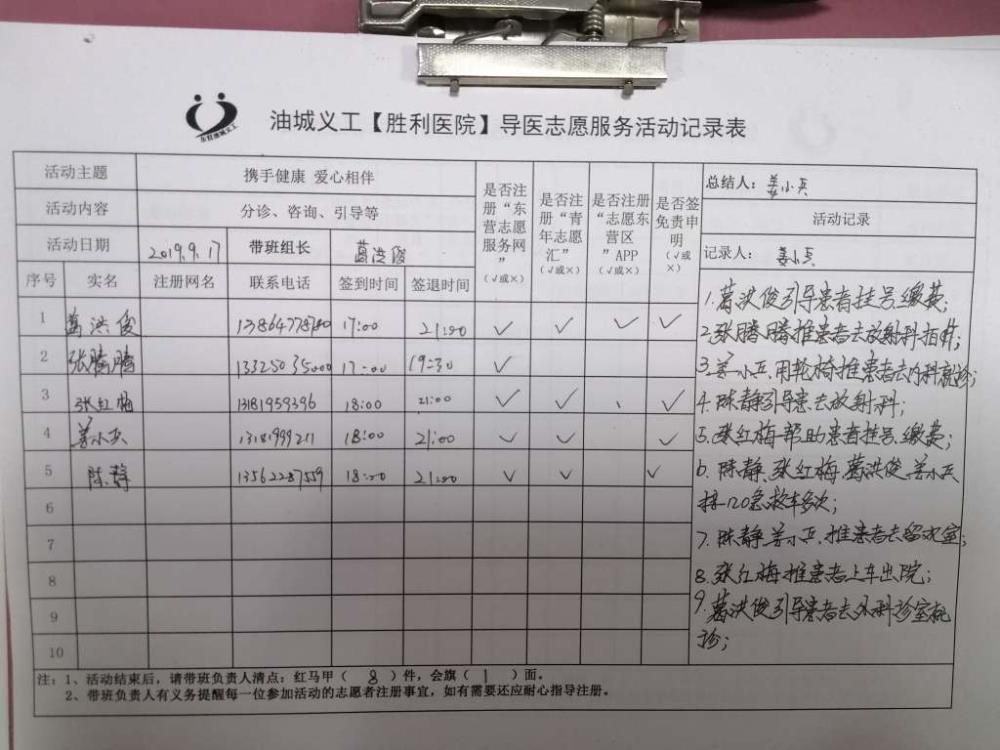 东营油城义工
油城义工【胜利医院】导医志愿服务活动记录表
活动主题 携手健康 爱心相伴
活动内容 分诊、咨询、引导等
活动日期 2019.9.17 带班组长 葛洪俊
是否注册“东营志愿服务网” (√或×)
是否注册“青年志愿汇” (√或×)
是否注册“志愿东营区”APP (√或×)
是否签免责申明 (√或×)
总结人：姜小兵
活动记录
记录人：姜小兵
序号 实名 注册网名 联系电话 签到时间 签退时间
1 葛洪俊 13864778780 17:00 21:00 √ √ √ √
2 张腾腾 13325035000 17:00 19:30 √
3 张红梅 13181959396 18:00 21:00 √ √ 、 √
4 姜小兵 13181999211 18:00 21:00 √ √ √
5 陈静 13562287559 18:00 21:00 √ √ √
6
7
8
9
10
1.葛洪俊引导患者挂号、缴费；
2.张腾腾推患者去放射科拍片；
3.姜小兵用轮椅推患者去内科就诊；
4.陈静引导患去放射科；
5.张红梅帮助患者挂号、缴费；
6.陈静、张红梅、葛洪俊、姜小兵
接120急救车多次；
7.陈静、姜小兵、推患者去留观室；
8.张红梅推患者上车出院；
9.葛洪俊引导患者去外科诊室就
诊；
注：1、活动结束后，请带班负责人清点：红马甲（ 8 ）件，会旗（ 1 ）面。
2、带班负责人有义务提醒每一位参加活动的志愿者注册事宜，如有需要还应耐心指导注册。